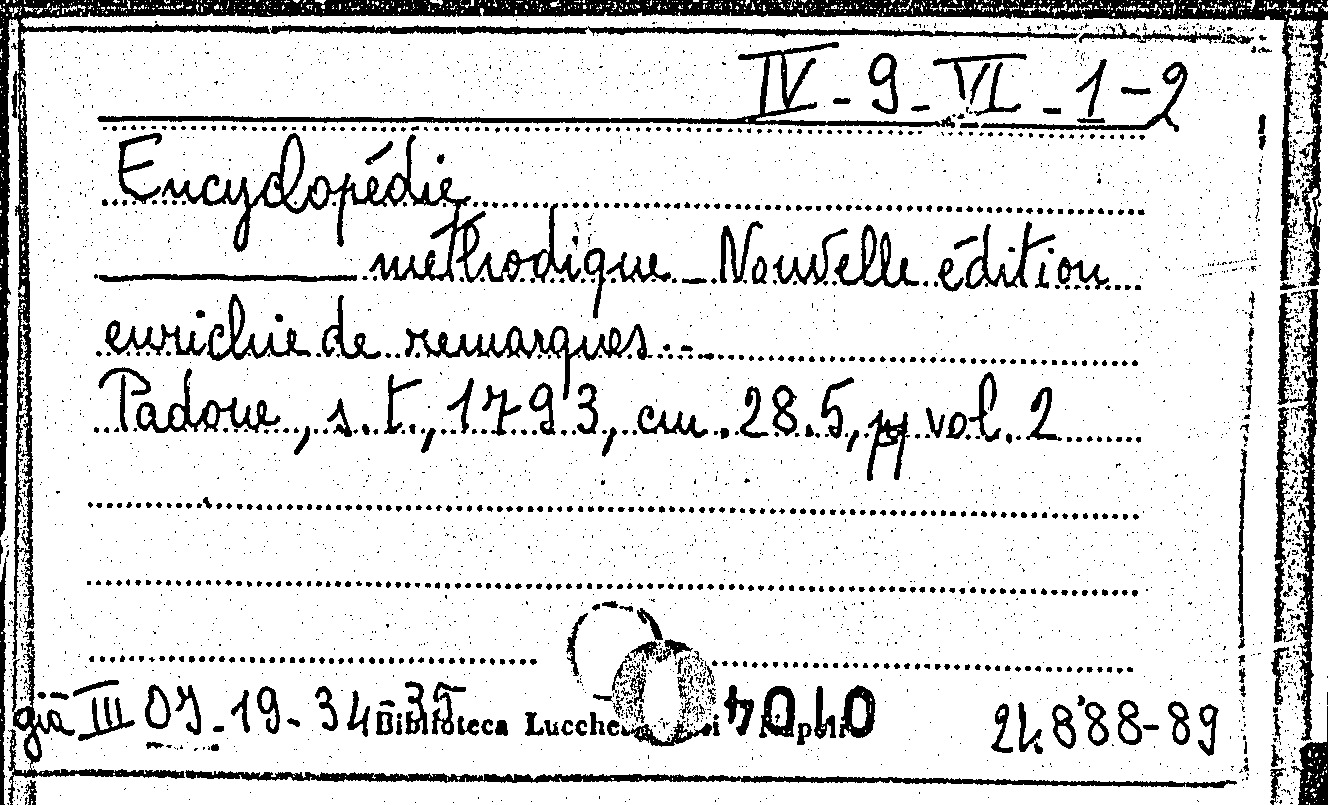 IV - 9 - VI - 1 - 2
Encyclopédie
méthodique - Nouvelle édition
enrichie de remarques...
Padoue, s.t., 1793, cm. 28.5, vol. 2
già III 07 - 19 - 34-35 Biblioteca 24888-89